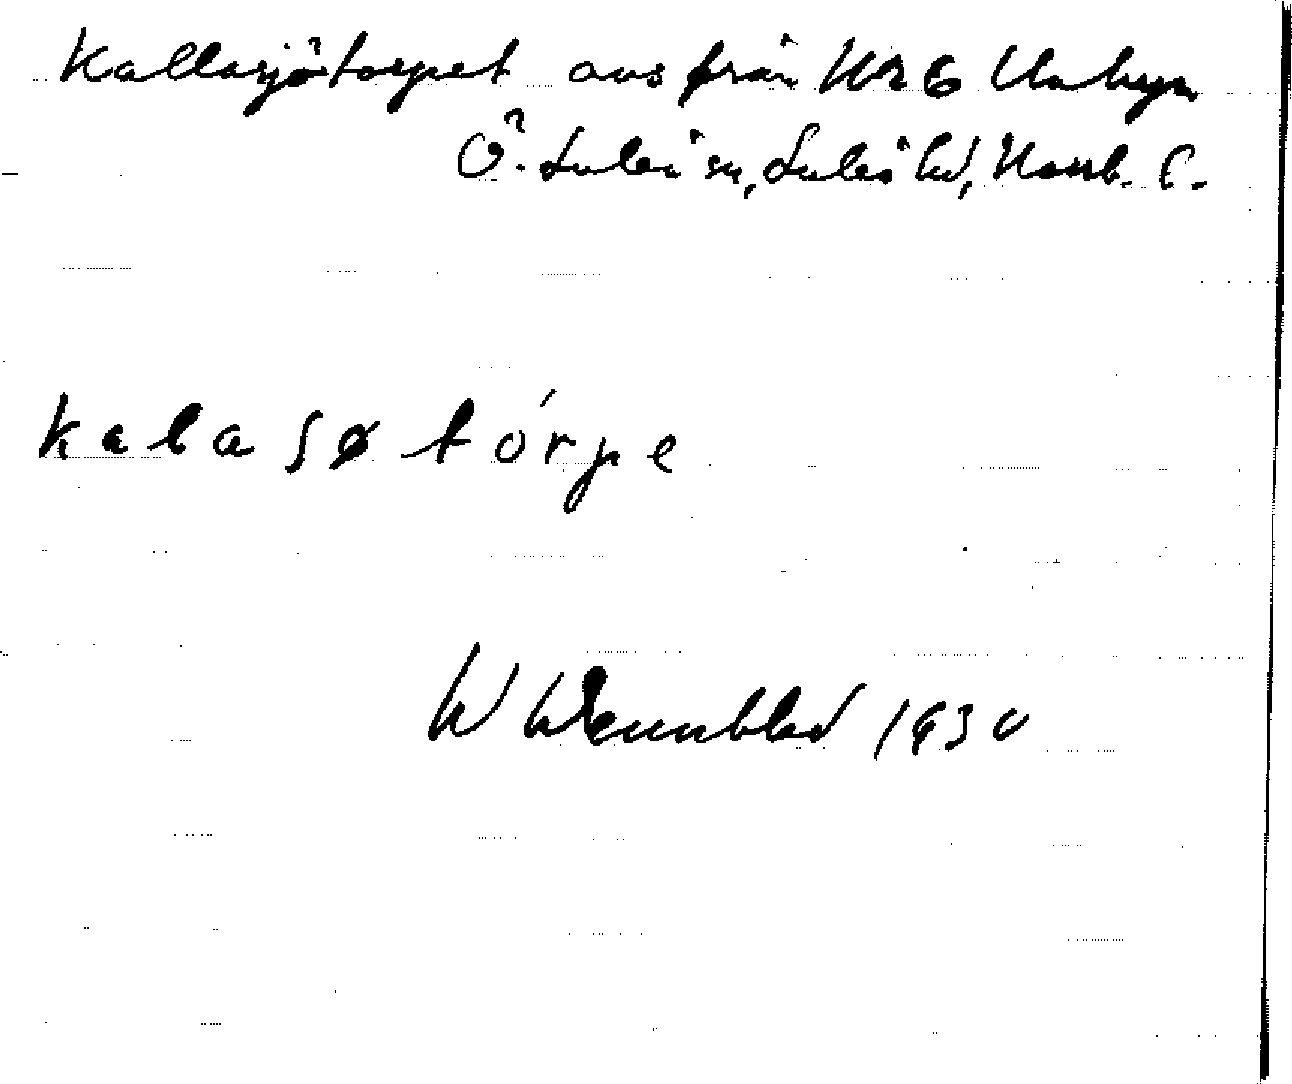 Kallasjötorpet avs från Nr 6 Unbyn
Ö. Luleå sn, Luleå hd, Norrb. l.
kalaʃøtórpe
W Wennblad 1930